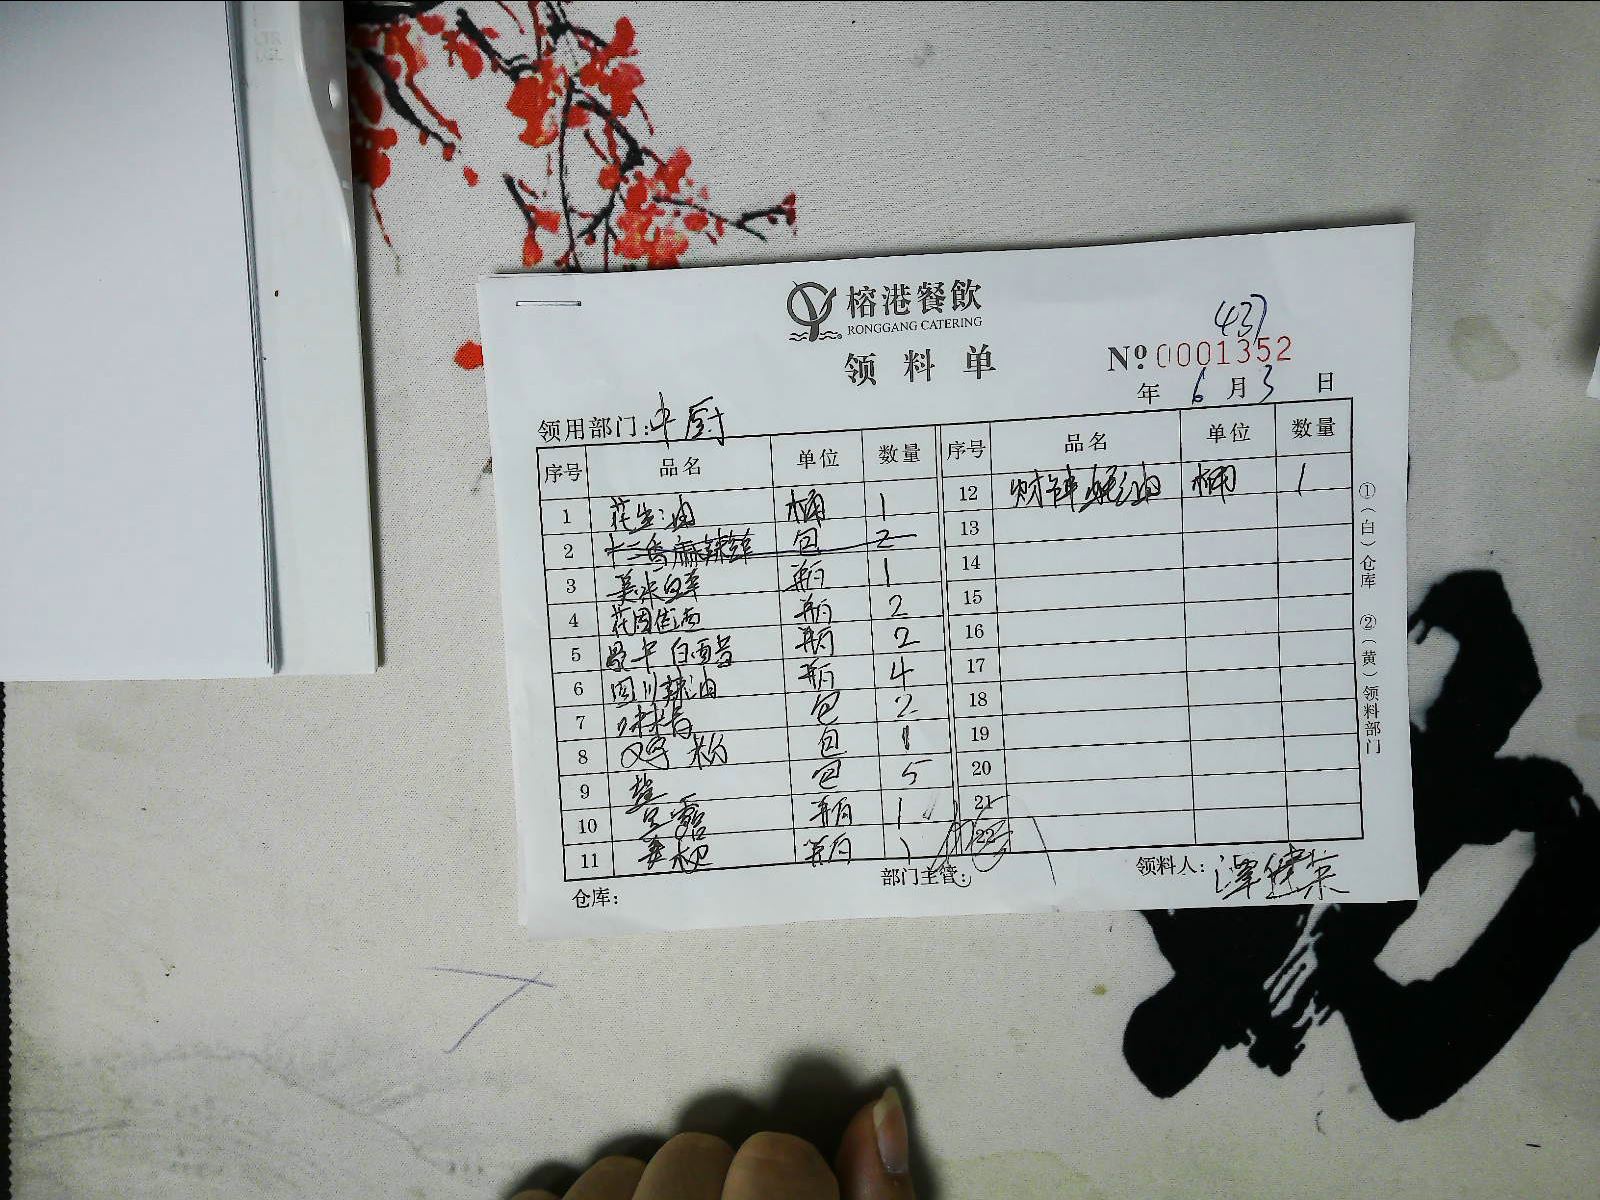 榕港餐飲
RONGGANG CATERING
领料单
437
No. 0001352
年 6 月 3 日
领用部门: 中厨
序号 品名 单位 数量 序号 品名 单位 数量
1 花生油 桶 1 12 财神蚝油 桶 1
2 十三香麻辣鲜 包 2 13
3 美味鲜 瓶 1 14
4 花图 酒 瓶 2 15
5 白醋 瓶 2 16
6 四川辣油 瓶 4 17
7 味精 包 2 18
8 鸡粉 包 1 19
9 盐 包 5 20
10 瓶 1 21
11 瓶 1 22
仓库: 部门主管: 领料人: 谭健荣
①(白)仓库 ②(黄)领料部门